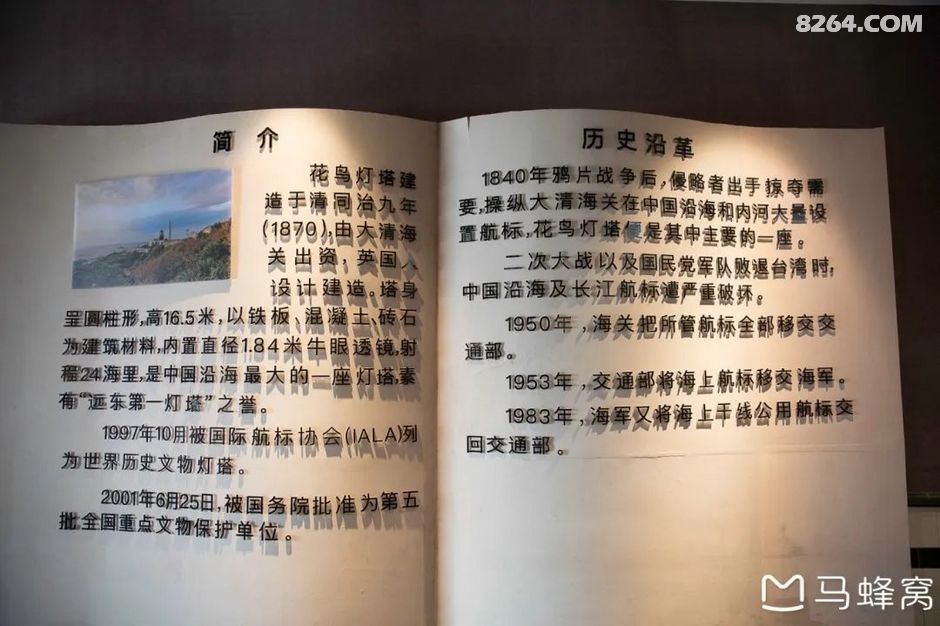 8264.COM
简 介
花鸟灯塔建
造于清同治九年
(1870),由大清海
关出资,英国人
设计建造。塔身
呈圆柱形,高16.5米,以铁板、混凝土、砖石
为建筑材料,内置直径1.84米牛眼透镜,射
程24海里,是中国沿海最大的一座灯塔,素
有“远东第一灯塔”之誉。
1997年10月被国际航标协会(IALA)列
为世界历史文物灯塔。
2001年6月25日,被国务院批准为第五
批全国重点文物保护单位。
历史沿革
1840年鸦片战争后,侵略者出于掠夺需
要,操纵大清海关在中国沿海和内河大量设
置航标,花鸟灯塔便是其中主要的一座。
二次大战以及国民党军队败退台湾时,
中国沿海及长江航标遭严重破坏。
1950年,海关把所管航标全部移交交
通部。
1953年,交通部将海上航标移交海军。
1983年,海军又将海上干线公用航标交
回交通部。
马蜂窝